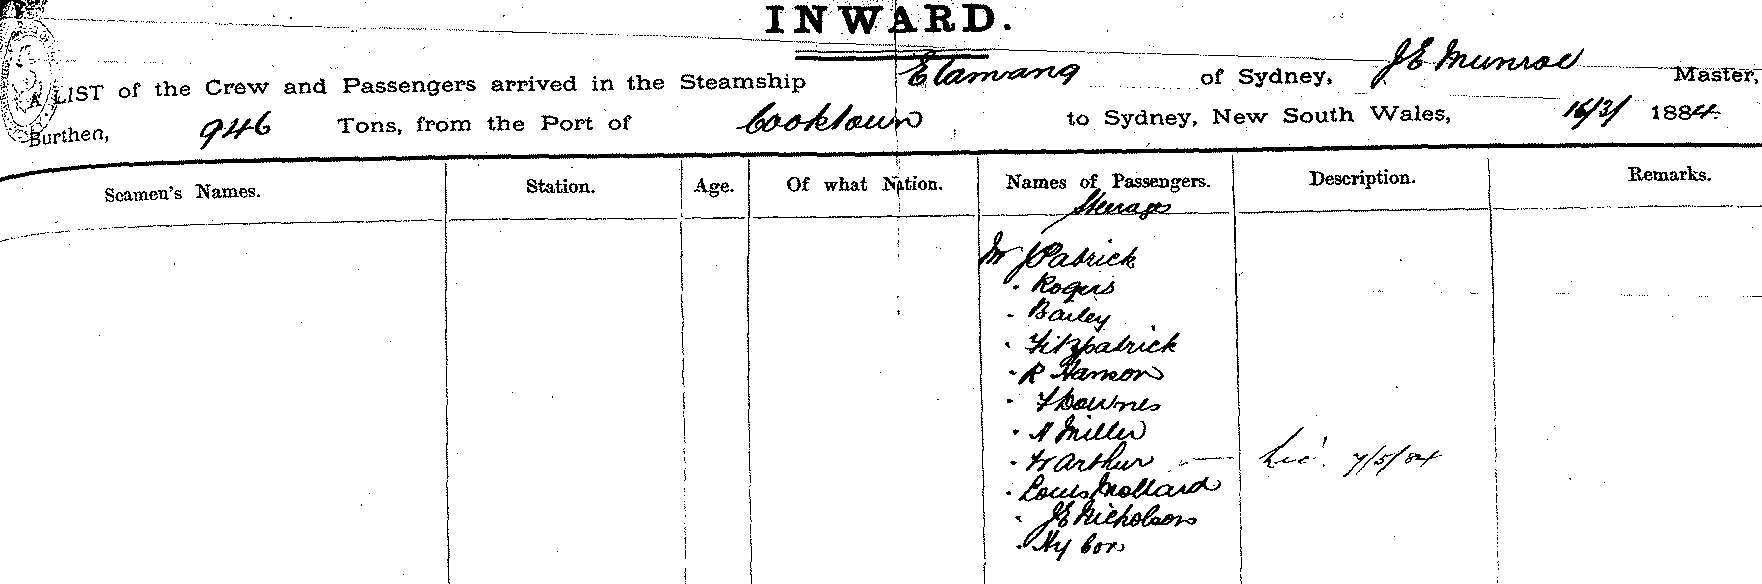 INWARD.
A LIST of the Crew and Passengers arrived in the Steamship Elamang of Sydney, J E Munroe Master,
Burthen, 946 Tons, from the Port of Cooktown to Sydney, New South Wales, 16/3/ 1884
Seamen's Names. Station. Age. Of what Nation. Names of Passengers. Description. Remarks.
Steerage
Mr J Patrick
" Rogers
" Bailey
" Fitzpatrick
" R Hanson
" F Downes
" H Miller
" W Arthur — Lic. 7/5/84
" Louis Mollard
" J E Nicholson
" Hy Cox